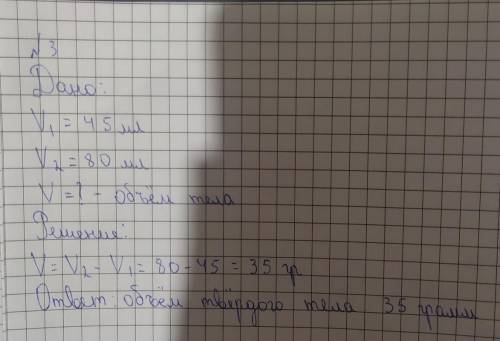 №3
Дано:
V₁ = 45 мл
V₂ = 80 мл
V = ? - объём тела
Решение:
V = V₂ - V₁ = 80 - 45 = 35 гр
Ответ: объём твёрдого тела 35 грамм